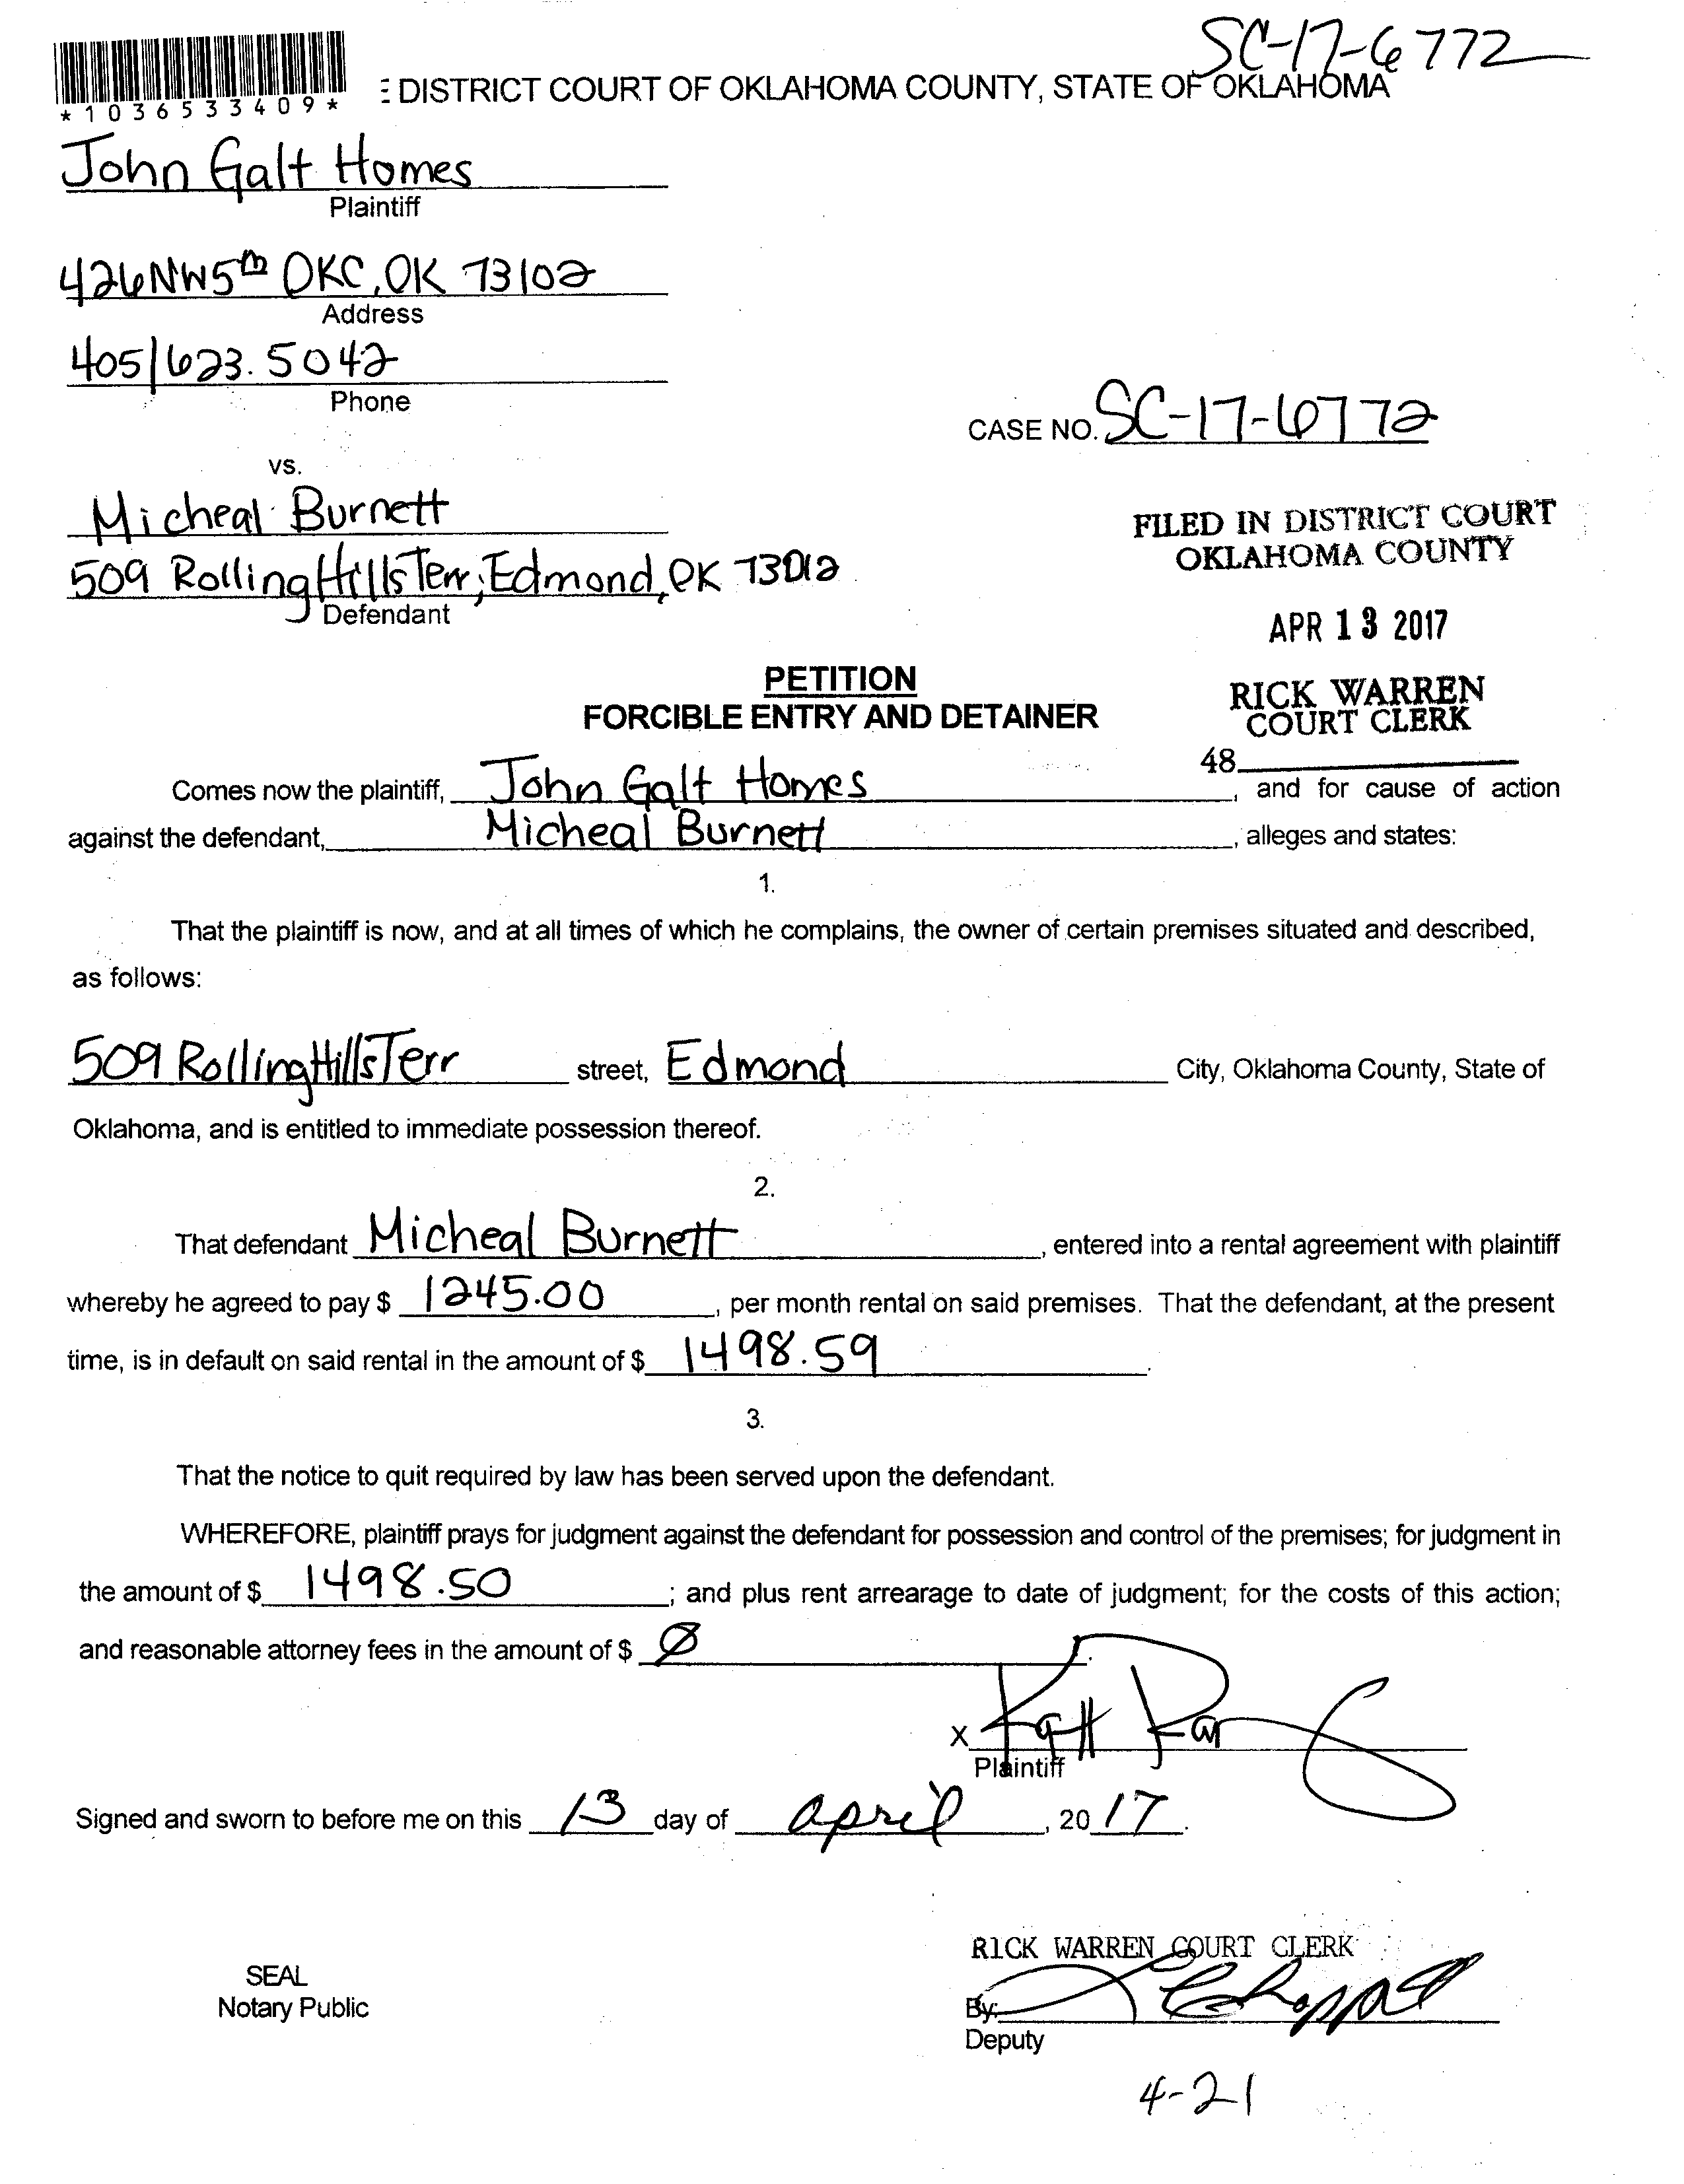 SC-17-6772
*1036533409*
E DISTRICT COURT OF OKLAHOMA COUNTY, STATE OF OKLAHOMA
John Galt Homes
Plaintiff
426 NW 5th OKC, OK 73102
Address
405/623.5042
Phone
CASE NO. SC-17-6772
vs.
Micheal Burnett
509 Rolling Hills Terr; Edmond, OK 73012
Defendant
FILED IN DISTRICT COURT
OKLAHOMA COUNTY
APR 13 2017
RICK WARREN
COURT CLERK
48
PETITION
FORCIBLE ENTRY AND DETAINER
Comes now the plaintiff, John Galt Homes, and for cause of action
against the defendant, Micheal Burnett, alleges and states:
1.
That the plaintiff is now, and at all times of which he complains, the owner of certain premises situated and described,
as follows:
509 Rolling Hills Terr street, Edmond City, Oklahoma County, State of
Oklahoma, and is entitled to immediate possession thereof.
2.
That defendant Micheal Burnett, entered into a rental agreement with plaintiff
whereby he agreed to pay $ 1245.00, per month rental on said premises. That the defendant, at the present
time, is in default on said rental in the amount of $ 1498.59.
3.
That the notice to quit required by law has been served upon the defendant.
WHEREFORE, plaintiff prays for judgment against the defendant for possession and control of the premises; for judgment in
the amount of $ 1498.50; and plus rent arrearage to date of judgment; for the costs of this action;
and reasonable attorney fees in the amount of $ Ø.
X
Plaintiff
Signed and sworn to before me on this 13 day of april, 2017.
RICK WARREN COURT CLERK
SEAL
Notary Public
By:
Deputy
4-21